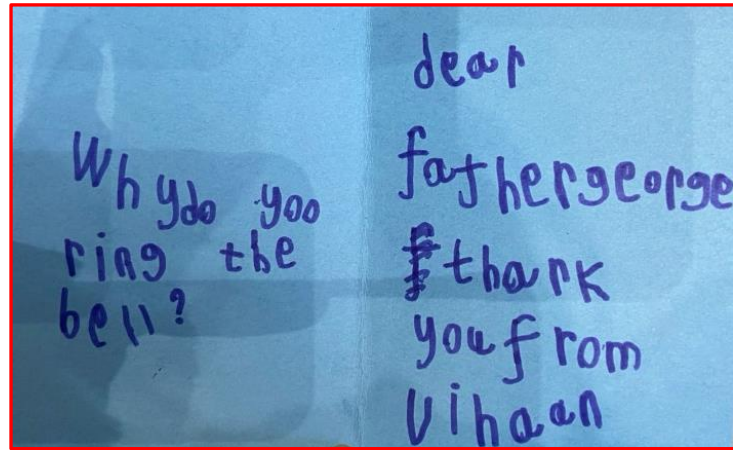 Why do yoo
ring the
bell?
dear
father george
thark
you from
Vihaan